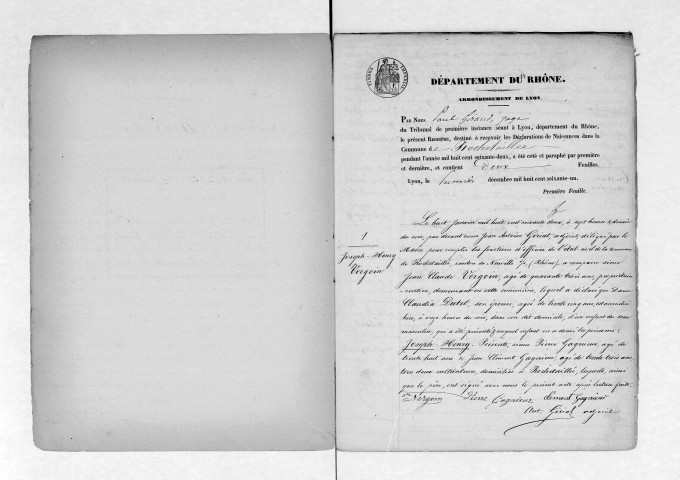 DÉPARTEMENT DU RHÔNE.
ARRONDISSEMENT DE LYON
PAR NOUS Paul Giraud, juge
du Tribunal de première instance séant à Lyon, département du Rhône,
le présent REGISTRE, destiné à recevoir les Déclarations de Naissances dans la
Commune de Rochetaillée
pendant l'année mil huit cent soixante-deux, a été coté et paraphé par première
et dernière, et contient Deux Feuilles.
Lyon, le premier décembre mil huit cent soixante-un.
Première Feuille.
1
Joseph-Henry
Vergoin
Le huit Janvier mil huit cent soixante deux, à sept heures &
du soir, par devant nous Jean Antoine Girial, adjoint, délégué par le
Maire pour remplir les fonctions d'officier de l'état civil de la commune
de Rochetaillée, canton de Neuville (Rhône), a comparu sieur
Jean Claude Vergoin, agé de quarante trois ans, propriétaire
rentier, demeurant en cette commune, lequel a déclaré que Dame
Claudia Dutel, son épouse, agée de trente cinq ans, est accouchée
hier, à onze heures du soir, dans son dit domicile, d'un enfant du sexe
masculin, qui a été présenté & auquel enfant on a donné les prénoms:
Joseph-Henry. Présents, sieurs Pierre Gagnieux, agé de
trente huit ans & Jean Clément Gagnieux, agé de trente trois ans,
tous deux cultivateurs, domiciliés à Rochetaillée, lesquels, ainsi
que le père, ont signé avec nous le présent acte après lecture faite.
Vergoin Pierre Gagnieux Clement Gagnieux
Ant. Girial adjoint